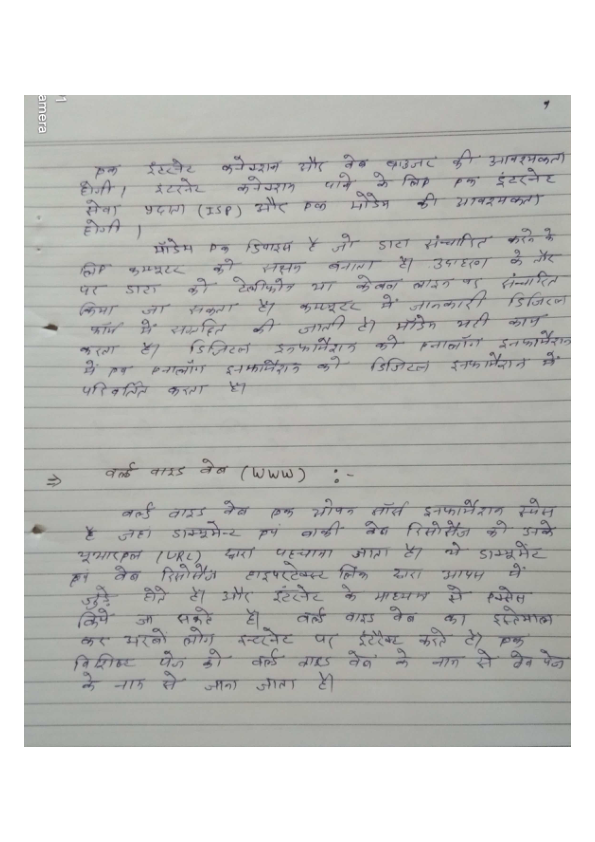 एक इंटरनेट कनेक्शन और वेब ब्राउजर की आवश्यकता
होगी। इंटरनेट कनेक्शन पाने के लिए एक इंटरनेट
सेवा प्रदाता (ISP) और एक मोडेम की आवश्यकता
होगी।
मॉडेम एक डिवाइस है जो डाटा संचारित करने के
लिए कम्प्यूटर को सक्षम बनाता है। उदाहरण के तौर
पर डाटा को टेलीफोन या केबल लाइन पर संचारित
किया जा सकता है। कम्प्यूटर में जानकारी डिजिटल
फॉर्म में संग्रहित की जाती है। मॉडेम यही काम
करता है। डिजिटल इनफार्मेशन को एनालॉग इनफार्मेशन
में एवं एनालॉग इनफार्मेशन को डिजिटल इनफार्मेशन में
परिवर्तित करता है।
⇒ वर्ल्ड वाइड वेब (WWW) :-
वर्ल्ड वाइड वेब एक ओपन सॉर्स इनफार्मेशन स्पेस
है जहा डाक्यूमेन्ट एवं बाकी वेब रिसोर्सेज को उनके
यूआरएल (URL) द्वारा पहचाना जाता है। ये डाक्यूमेंट
एवं वेब रिसोर्सेज हाइपरटेक्स्ट लिंक द्वारा आपस में
जुड़े होते है। और इंटरनेट के माध्यम से एक्सेस
किये जा सकते है। वर्ल्ड वाइड वेब का इस्तेमाल
कर अरबो लोग इन्टरनेट पर इंटरैक्ट करते है। एक
विशिष्ट पेज को वर्ल्ड वाइड वेब के नाम से वेब पेज
के नाम से जाना जाता है।